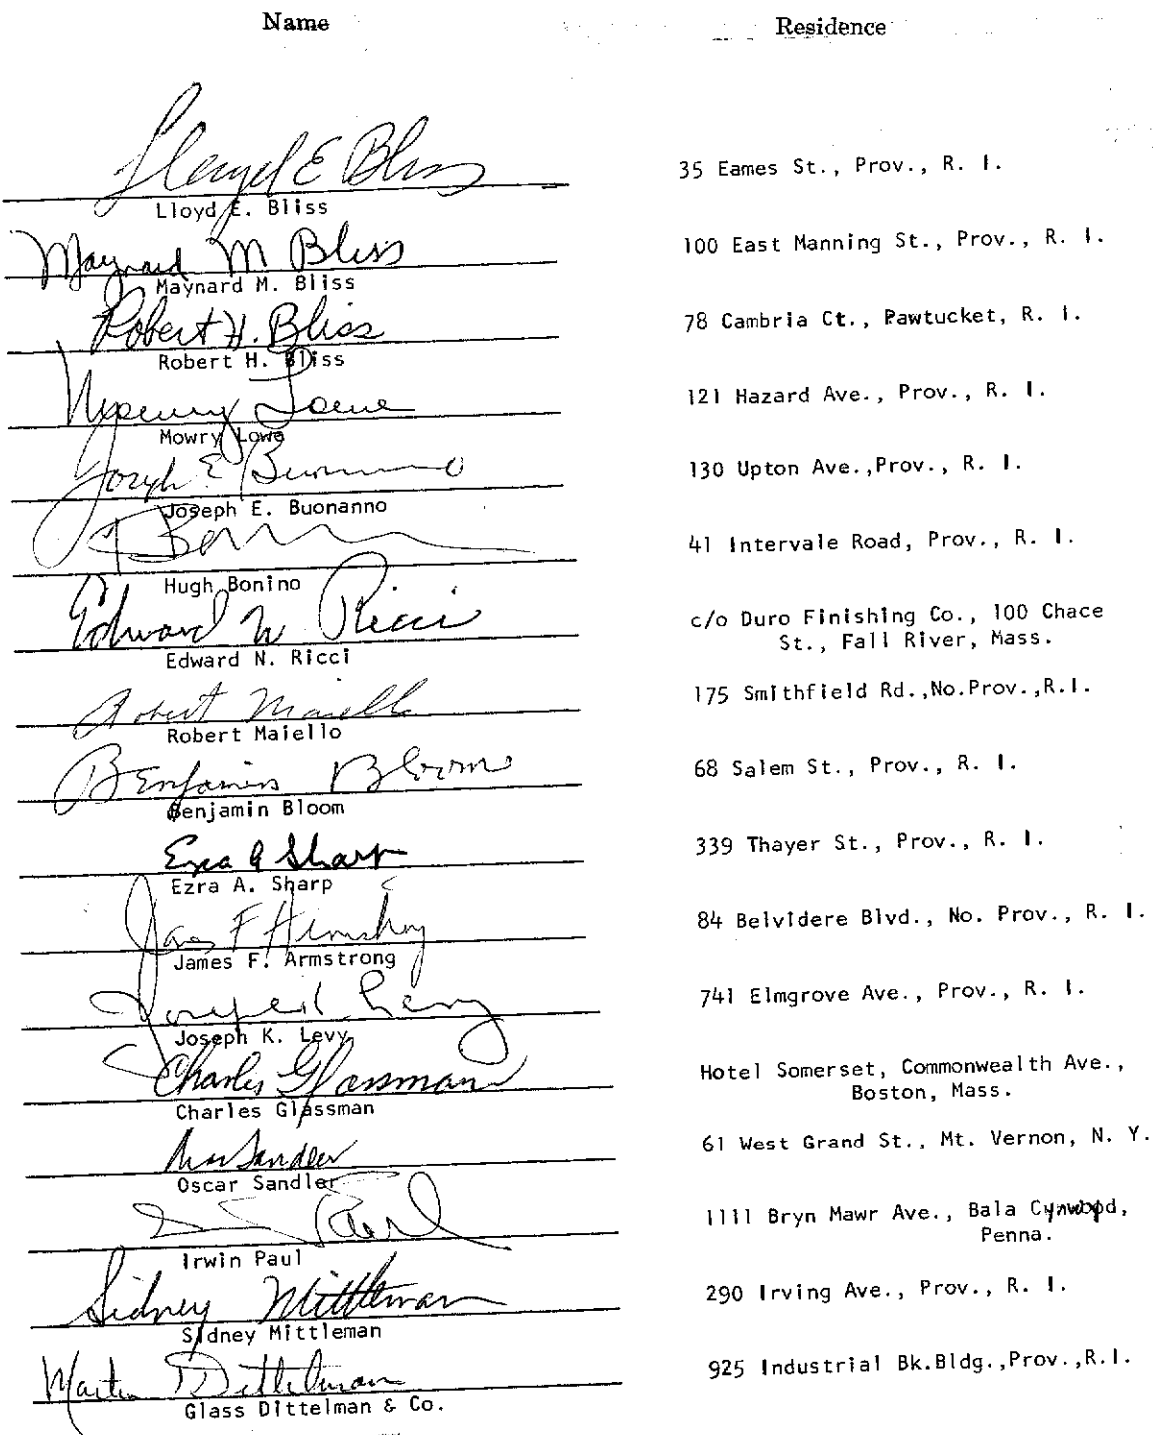 Name Residence
Lloyd E Bliss
Lloyd E. Bliss 35 Eames St., Prov., R. I.
Maynard M Bliss
Maynard M. Bliss 100 East Manning St., Prov., R. I.
Robert H. Bliss
Robert H. Bliss 78 Cambria Ct., Pawtucket, R. I.
Mowry Lowe
Mowry Lowe 121 Hazard Ave., Prov., R. I.
Joseph E Buonanno
Joseph E. Buonanno 130 Upton Ave.,Prov., R. I.
Hugh Bonino 41 Intervale Road, Prov., R. I.
Edward N Ricci
Edward N. Ricci c/o Duro Finishing Co., 100 Chace
St., Fall River, Mass.
Robert Maiello
Robert Maiello 175 Smithfield Rd.,No.Prov.,R.I.
Benjamin Bloom
Benjamin Bloom 68 Salem St., Prov., R. I.
Ezra A Sharp
Ezra A. Sharp 339 Thayer St., Prov., R. I.
James F Armstrong
James F. Armstrong 84 Belvidere Blvd., No. Prov., R. I.
Joseph K Levy
Joseph K. Levy 741 Elmgrove Ave., Prov., R. I.
Charles Glassman
Charles Glassman Hotel Somerset, Commonwealth Ave.,
Boston, Mass.
Oscar Sandler
Oscar Sandler 61 West Grand St., Mt. Vernon, N. Y.
Paul
Irwin Paul 1111 Bryn Mawr Ave., Bala Cynwyd,
Penna.
Sidney Mittleman
Sidney Mittleman 290 Irving Ave., Prov., R. I.
Martin Dittelman
Glass Dittelman & Co. 925 Industrial Bk.Bldg.,Prov.,R.I.